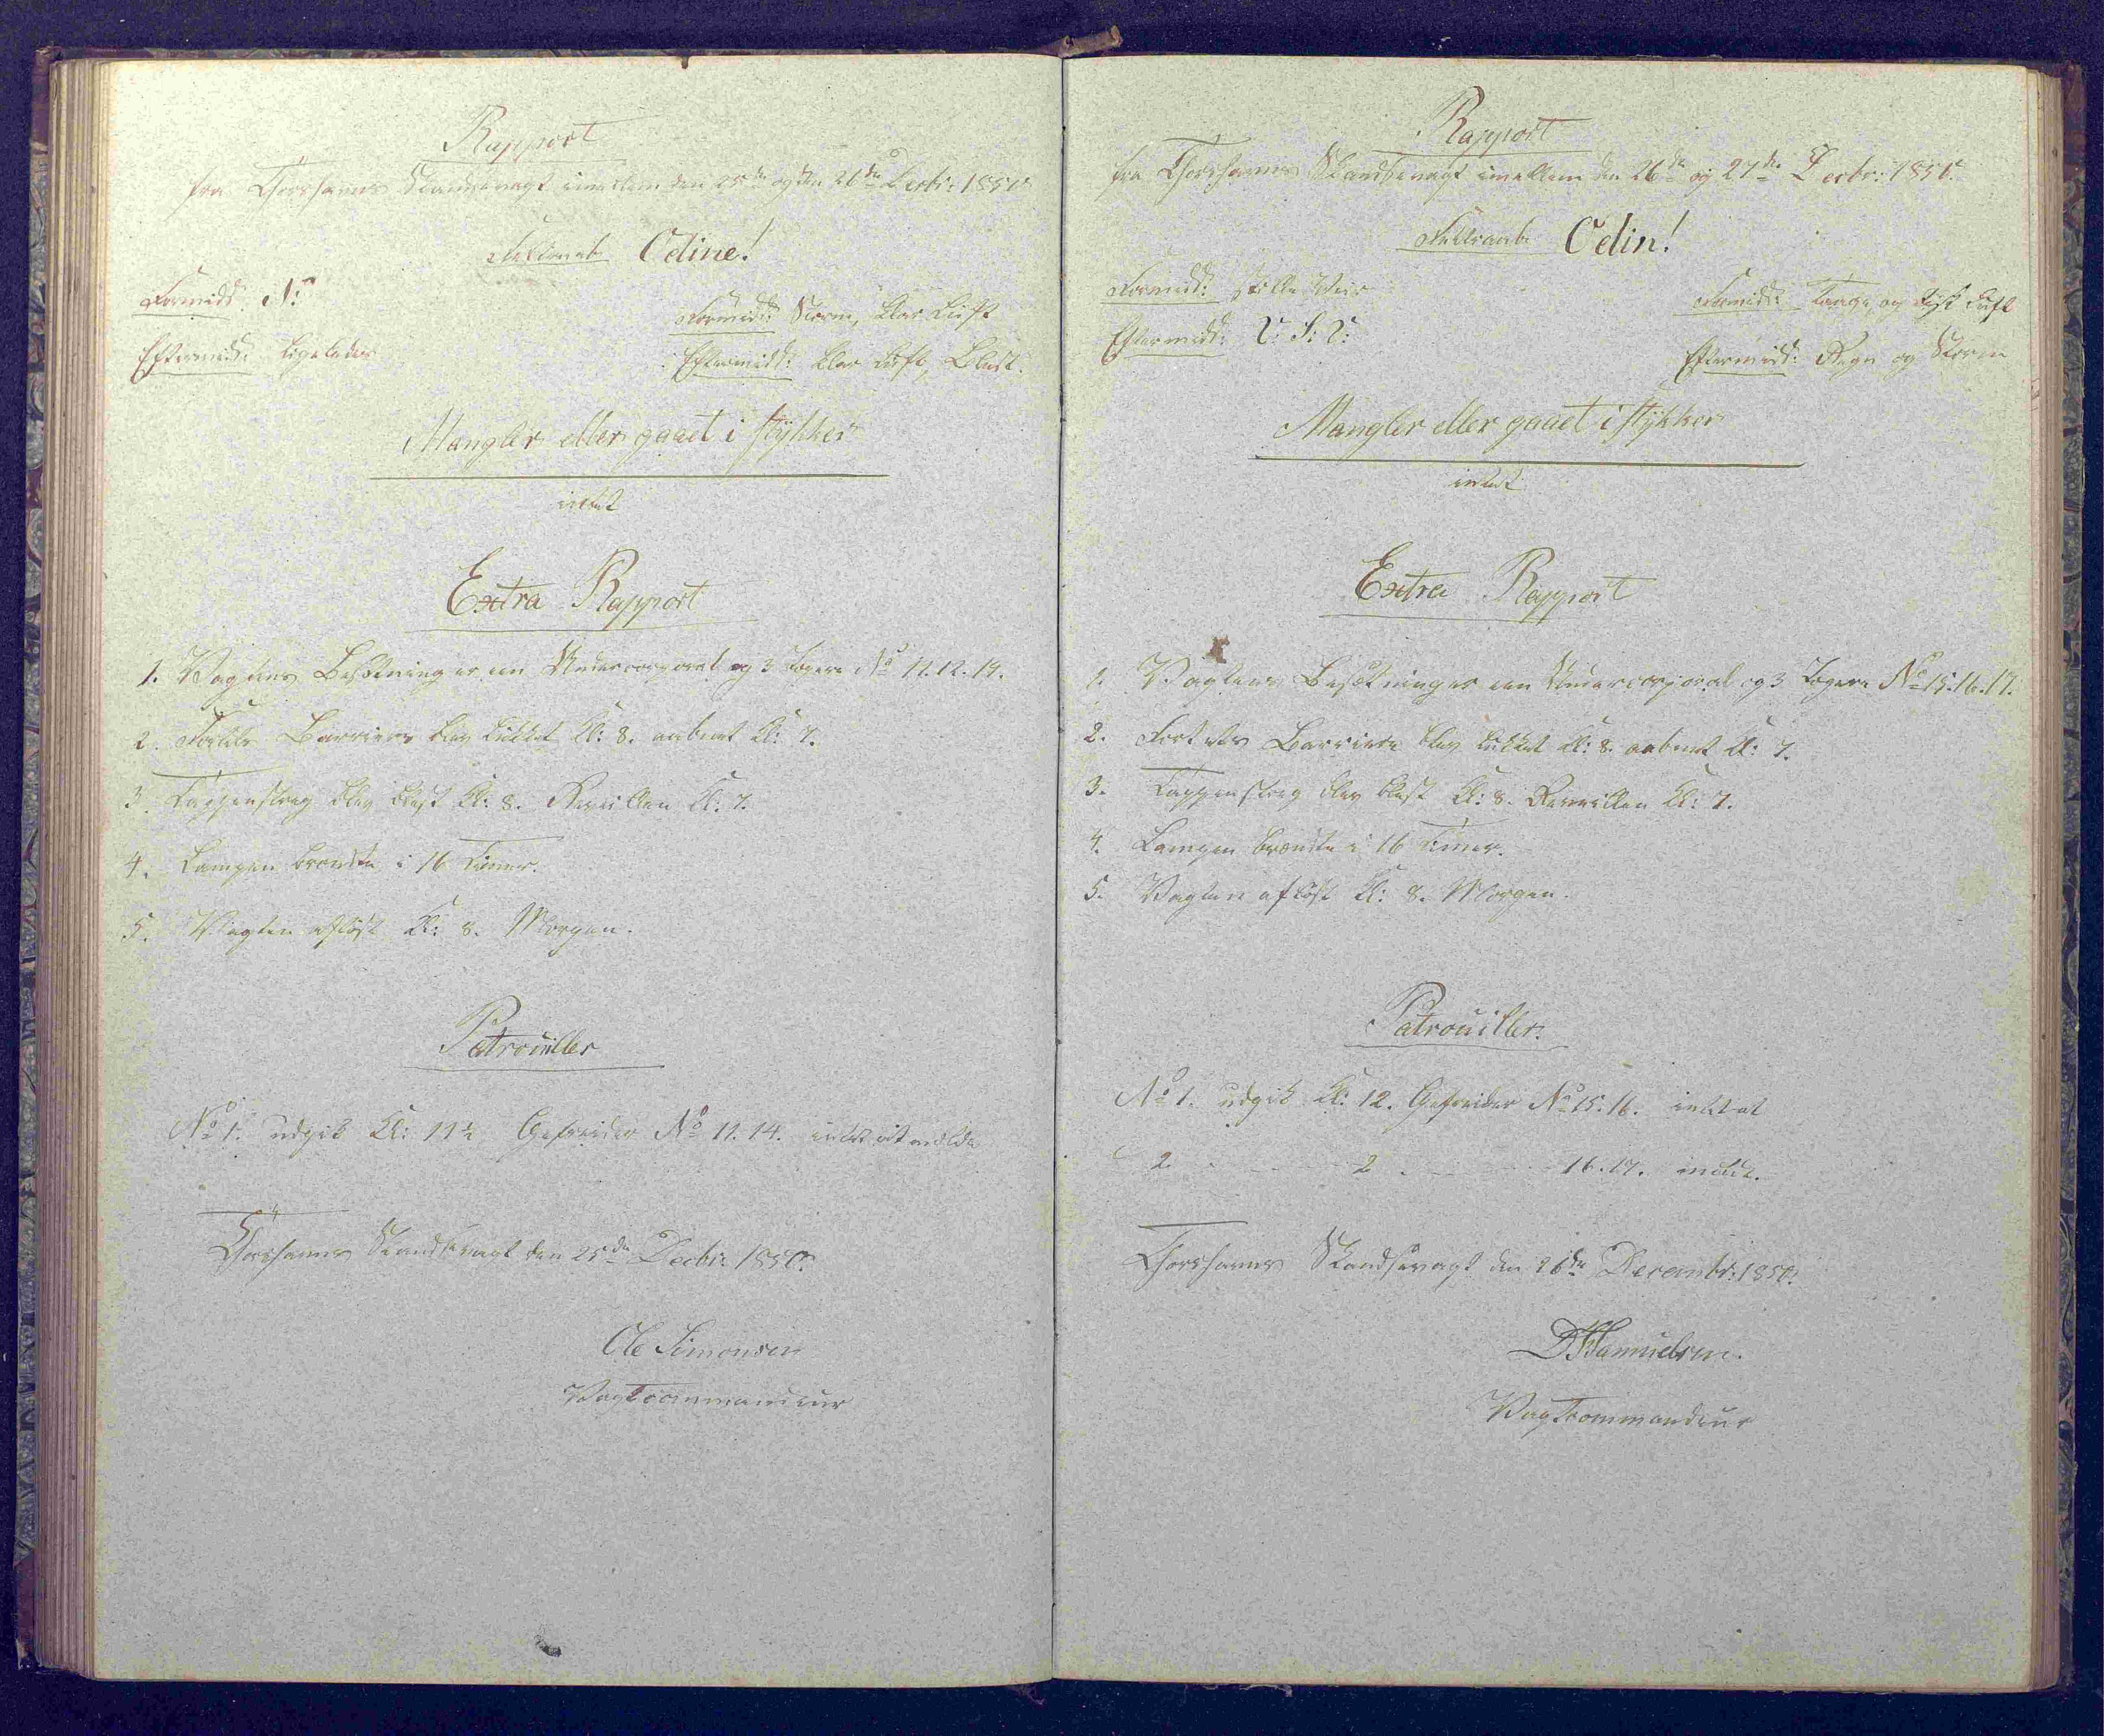 Rapport
fra Thorshavns Skandsevagt imellem den 25de og den 26de Decbr: 1850.
Feltraab Odine!
Formidd: N:
Formidd: Storm, klar Luft
Eftermidd: ligeledes
Eftermidd: klar Luft, Blæst.
Mangler eller gaaet i stykker
intet
Extra Rapport
1. Vagtens Besætning er een Undercorporal og 3 Jægere No 11. 12. 14.
2. Fortets Barriere blev lukket Kl: 8. aabnet Kl: 7.
3. Tappenstreg blev blæst Kl: 8. Reveillen Kl: 7.
4. Lampen brændte i 16 Timer.
5. Vagten afløst Kl: 8. Morgen.
Patrouiller
No 1. udgik Kl: 11½ Gefreider No 11. 14. intet at melde
Thorshavns Skandsevagt den 25de Decbr: 1850.
Ole Simonsen
Vagtcommandeur
Rapport
fra Thorshavns Skandsevagt imellem den 26de og 27de Decbr: 1850.
Feltraab Odin!
Formidd: stille Veir
Formidd: Taage, og tyk Luft
Eftermidd: V: S: V:
Eftermidd: Regn og Storm
Mangler eller gaaet i stykker
intet
Extra Rapport
1. Vagtens Besætning er een Undercorporal og 3 Jægere No 15. 16. 17.
2. Fortets Barriere blev lukket Kl: 8. aabnet Kl: 7.
3. Tappenstreg blev blæst Kl: 8. Reveillen Kl: 7.
4. Lampen brændte i 16 Timer.
5. Vagten afløst Kl: 8. Morgen.
Patrouiller.
No 1. udgik Kl: 12. Gefreider No 15. 16. intet at
2 - - - - 2 - - - - 16. 17. melde.
Thorshavns Skandsevagt den 26de Decembr: 1850.
D Samuelsen.
Vagtcommandeur